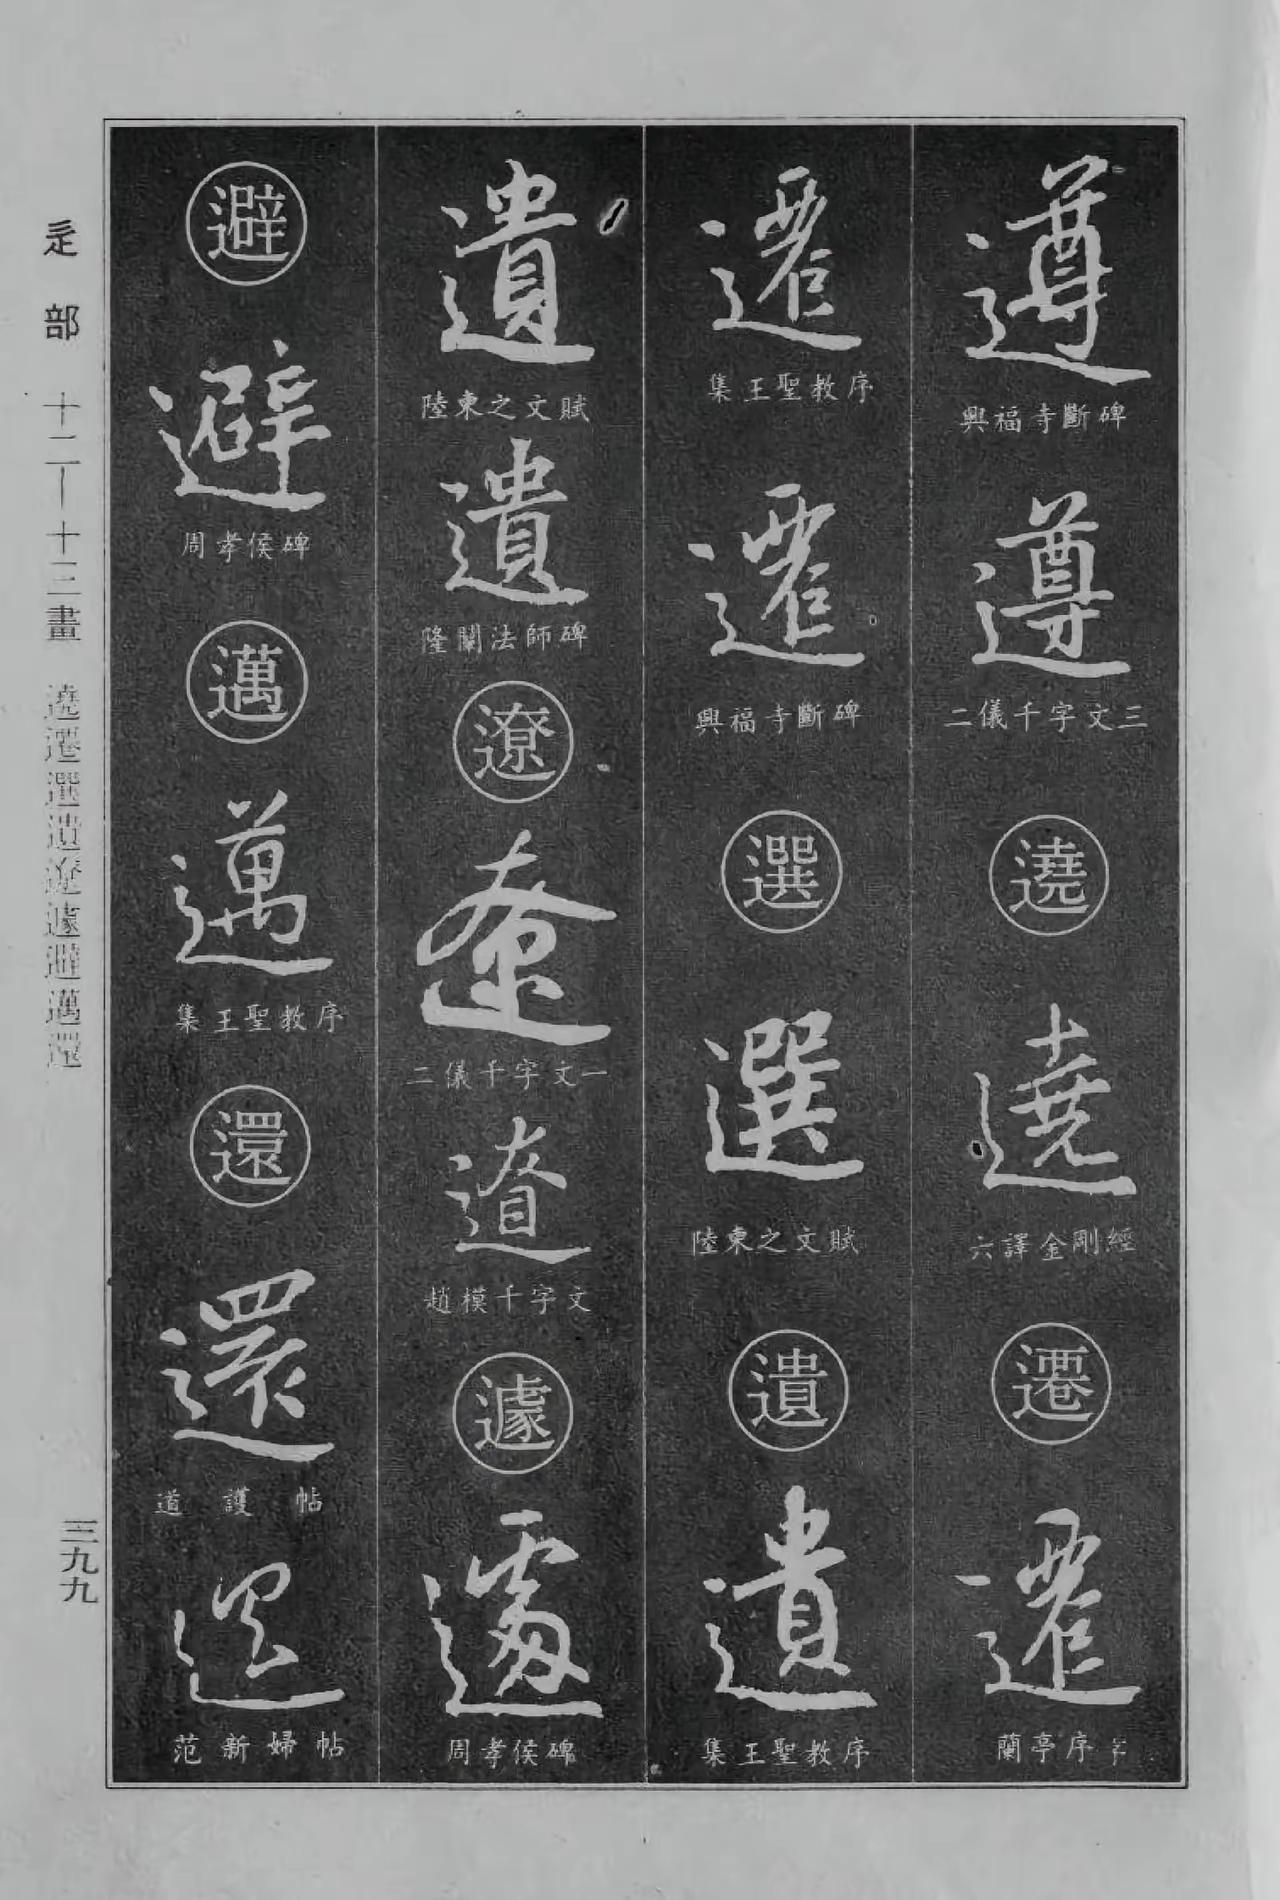 遵
興福寺斷碑
遵
二儀千字文三
遶
遶
六譯金剛經
遷
遷
蘭亭序
遷
集王聖教序
遷
興福寺斷碑
選
選
陸柬之文賦
遺
遺
集王聖教序
遺
陸柬之文賦
遺
隆闡法師碑
遼
遼
二儀千字文一
遼
趙模千字文
遽
遽
周孝侯碑
避
避
周孝侯碑
邁
邁
集王聖教序
還
還
道護帖
還
范新婦帖
辵部 十二—十三畫 遶遷選遺遼遽避邁還
三九九